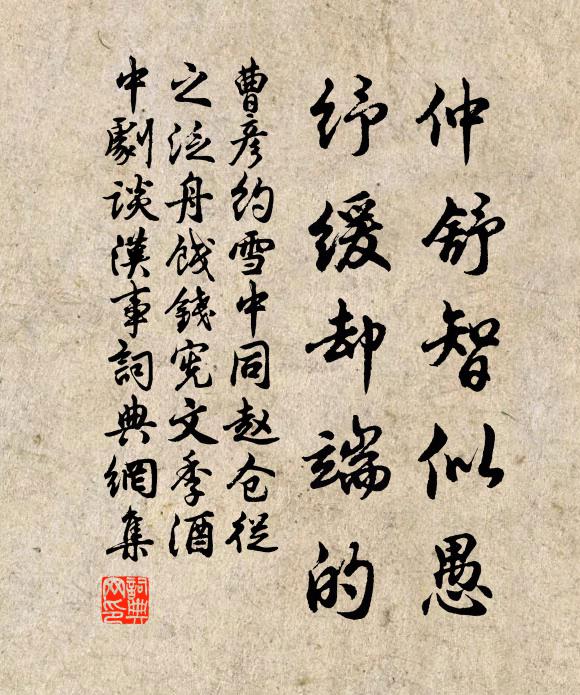 仲舒智似愚
纾缓却端的
曹彦约雪中同赵仓从
之泛舟饯錢宪文季酒
中劇谈漢事詞典網集
詞典